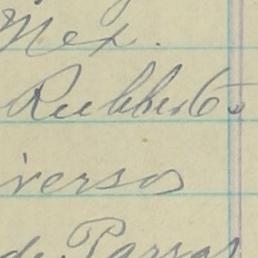 Mex.
Rubber Co.
iversos
de Parras